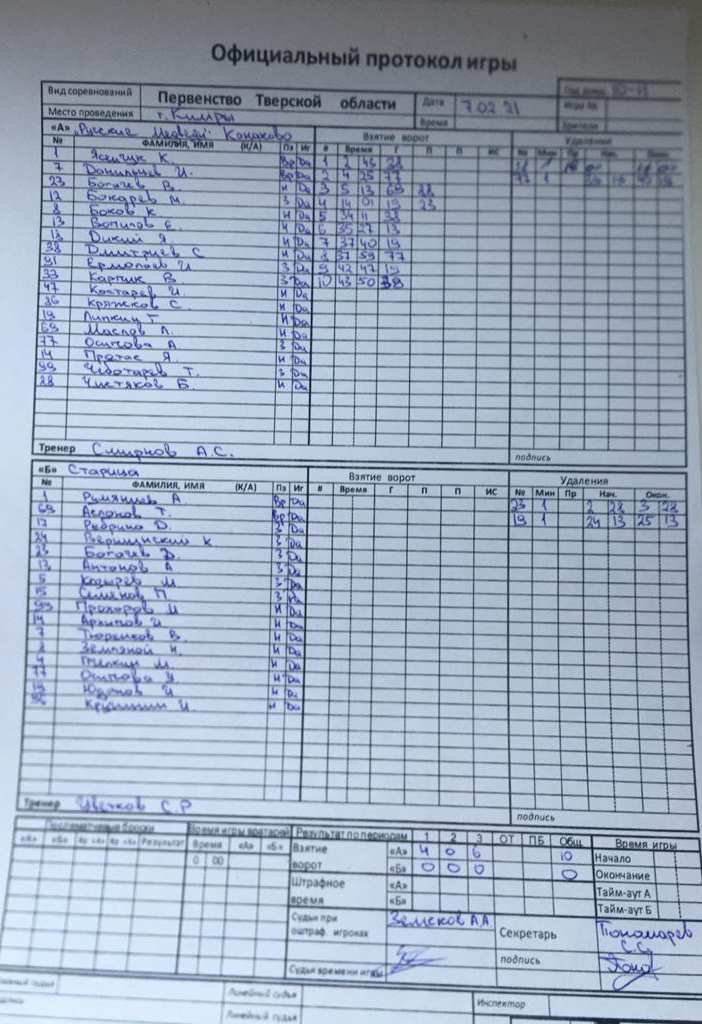 Официальный протокол игры
Вид соревнований Первенство Тверской области Дата 7 02 21 Год рожд. 10-11
Место проведения г. Кимры Время Игры № Зрители
«А» Русские медведи Конаково Взятие ворот Удаления
№ ФАМИЛИЯ, ИМЯ (К/А) Пз Иг # Время Г П П ИС № Мин Пр Нач. Окон.
1 Ясенчук К. Вр Да 1 2 43
7 Данильчев И. Вр Да 2 4 25 77
23 Богачев В. Н Да 3 5 13 69 88
12 Бокарев М. З Да 4 14 01 19 23
8 Боков К. Н Да 5 34 11
13 Е. Н Да 6 35 27 13
18 Дикий Я. Н Да 7 37 40 19
38 Дмитриев С Н Да 8 37 59 77
91 Ермолаев И З Да 9 42 47 19
33 Карпик В. З Да 10 43 50
47 Костарев И. Н Да
86 Кряжков С. Н Да
19 Липкин Т Н Да
69 Маслов Л. Н Да
77 Осипова А З Да
14 Протас Я. Н Да
99 Чеботарев Т. З Да
88 Чистяков Б. Н Да
Тренер Смирнов А.С. подпись
«Б» Старица Взятие ворот Удаления
№ ФАМИЛИЯ, ИМЯ (К/А) Пз Иг # Время Г П П ИС № Мин Пр Нач. Окон.
1 Румянцев А Вр Да 23 1 2 28 3 28
69 Т. Вр Да 19 1 24 13 25 13
17 О. З Да
24 К З Да
23 Богачев З Да
13 Антонов А З Да
5 Козырев М З Да
15 Семенов П. З Да
99 Прохоров И Н Да
14 Архипов И Н Да
7 Тюренков В. Н Да
2 Земляной Н. Н Да
4 М. Н Да
77 Осипова Н Да
19 Юданов И Н Да
96 И. Н Да
Тренер Цветков С.Р подпись
Послематчевые броски Время игры вратарей Результат по периодам 1 2 3 ОТ ПБ Общ Время игры
«А» «Б» вр «А» вр «Б» Результат Время «А» «Б» Взятие ворот «А» 4 0 6 10 Начало
0 00 «Б» 0 0 0 0 Окончание
Штрафное время «А» Тайм-аут А
«Б» Тайм-аут Б
Судьи при оштраф. игроках Земсков А.А Секретарь Пономарев С.С.
Судья времени игры подпись
Линейный судья Инспектор
Линейный судья